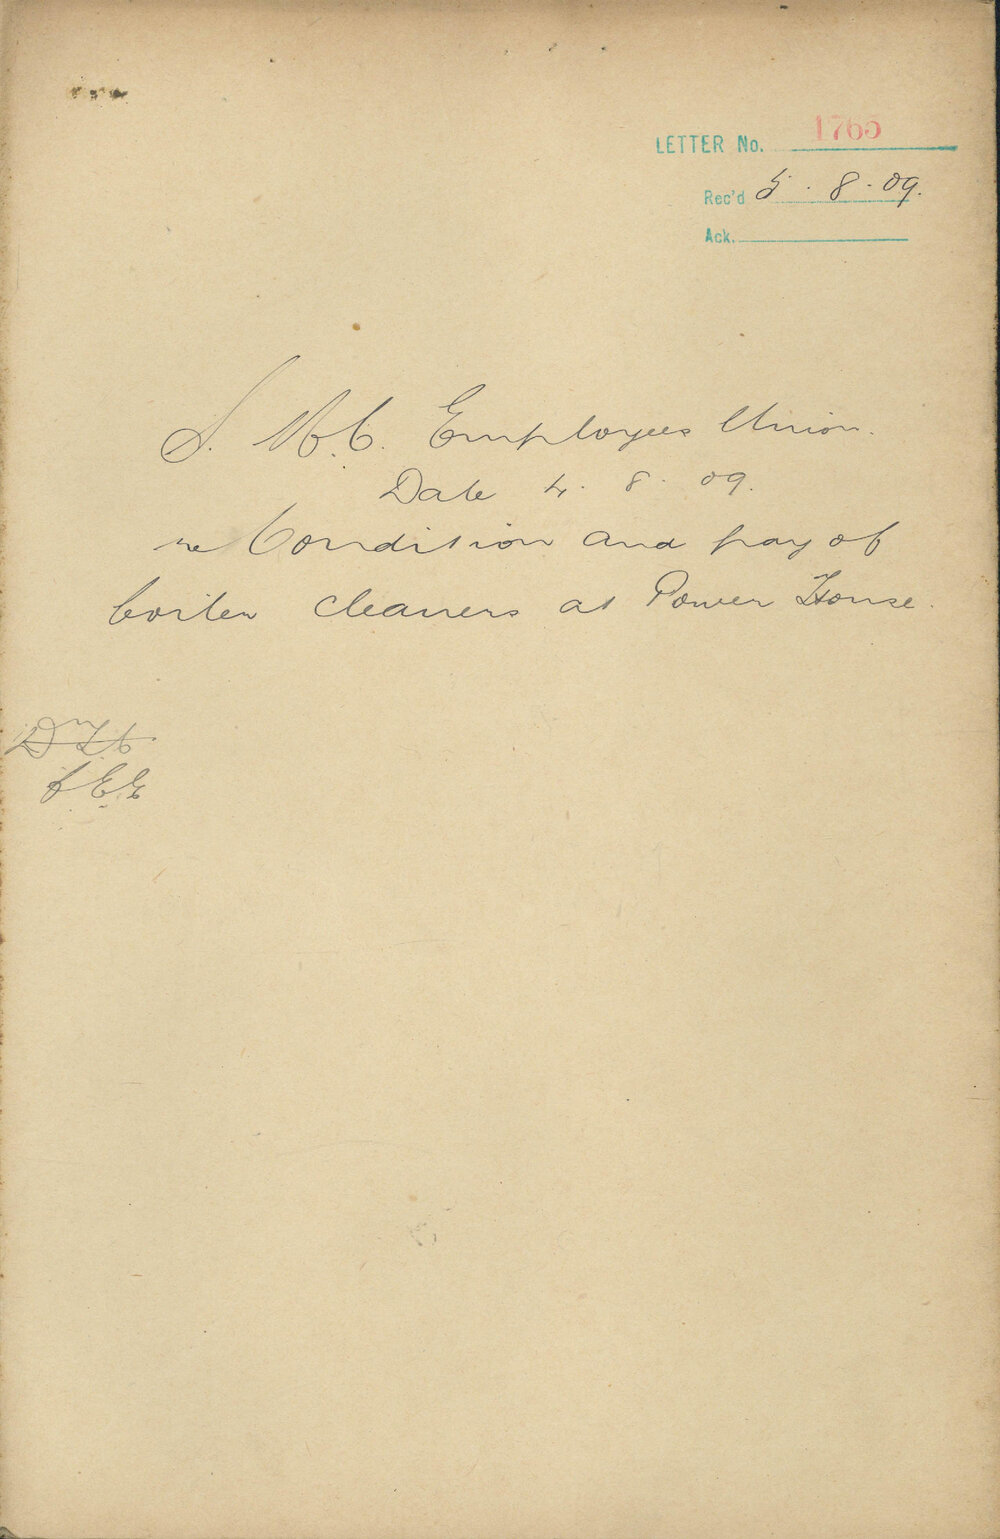 LETTER No. 1765
Rec'd 5. 8. 09.
Ack.
S. M. C. Employees Union.
Date 4. 8. 09.
re Condition and pay of
boiler cleaners at Power House.
E.E